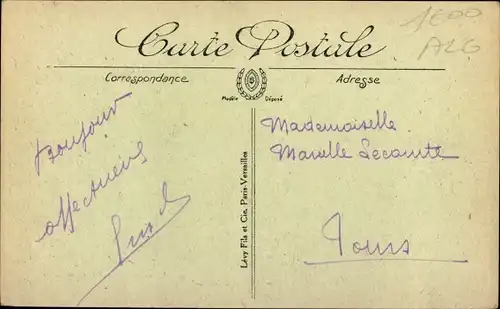 1€00
ALG
Carte Postale
Correspondance
Adresse
Modèle Déposé
Bonjour
affectueux
Lévy Fils et Cie, Paris-Versailles
Mademoiselle
Marcelle Lecomte
Tours